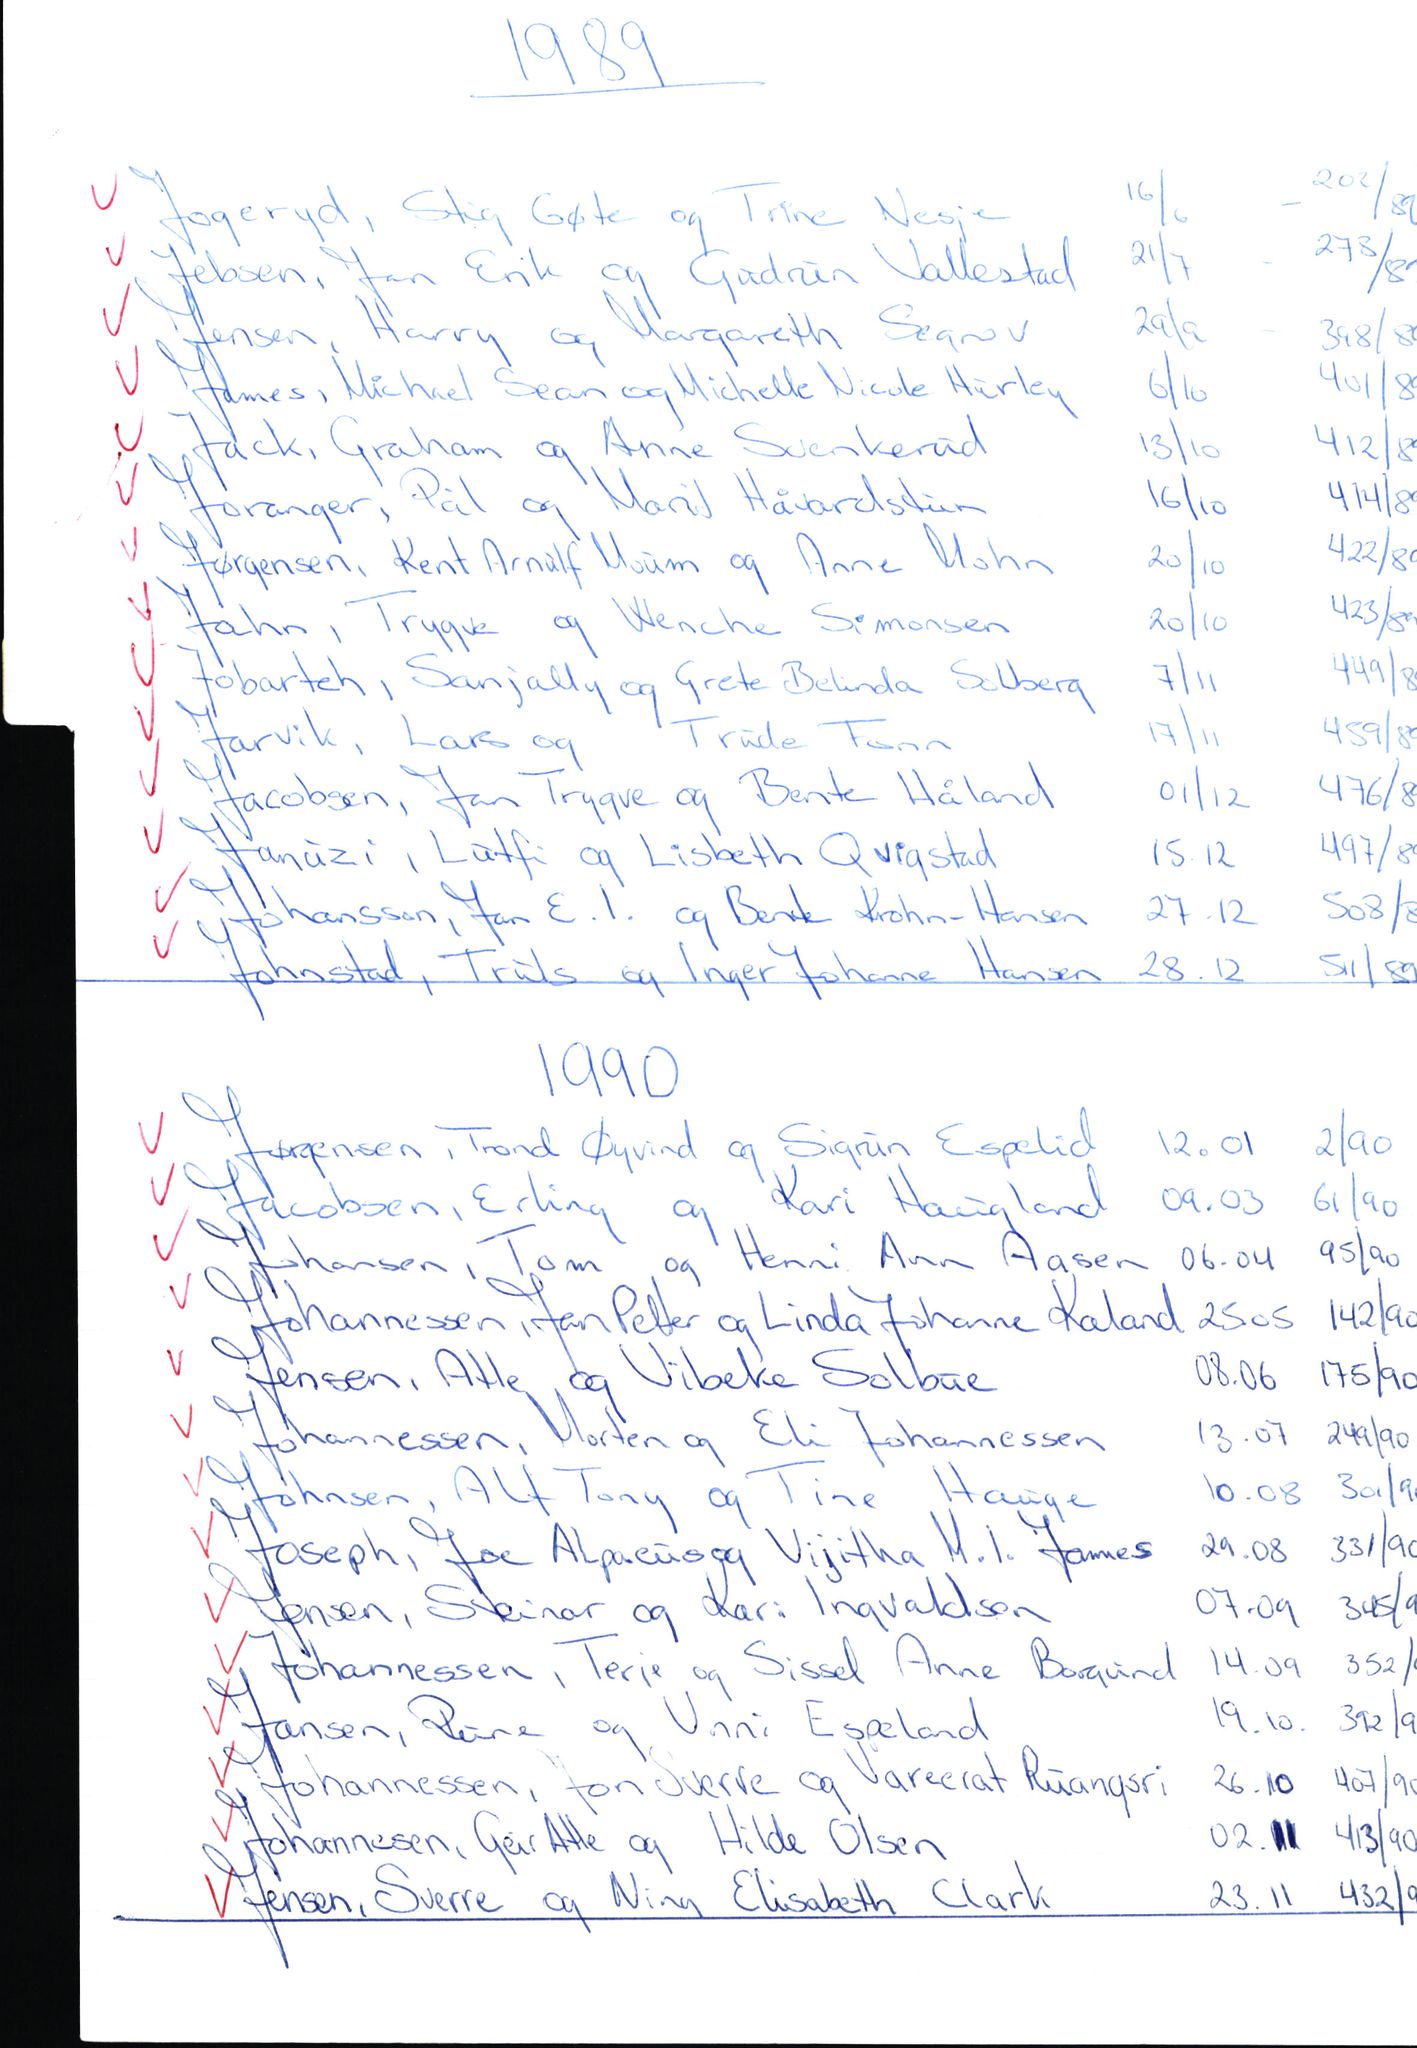 1989
Jogeryd, Stig Gøte og Trine Nesje 16/6 - 202/89
Jebsen, Jan Erik og Gudrun Vallestad 21/7 - 273/89
Jensen, Harry og Margareth Segrov 29/9 - 398/89
James, Michael Sean og Michelle Nicole Hurley 6/10 401/89
Jack, Graham og Anne Svenkerud 13/10 412/89
Joranger, Pål og Marit Håvardstun 16/10 414/89
Jørgensen, Kent Arnulf Muum og Anne Mohn 20/10 422/89
Jahn, Trygve og Wenche Simonsen 20/10 423/89
Jobarteh, Sanjally og Grete Belinda Solberg 7/11 449/8
Jarvik, Lars og Trude Fonn 17/11 459/89
Jacobsen, Jan Trygve og Bente Håland 01/12 476/89
Januzi, Lutfi og Lisbeth Qvigstad 15.12 497/89
Johansson, Jan E.I. og Bente Krohn-Hansen 27.12 508/8
Johnstad, Truls og Inger Johanne Hansen 28.12 511/89
1990
Jørgensen, Trond Øyvind og Sigrun Espelid 12.01 2/90
Jacobsen, Erling og Kari Haugland 09.03 61/90
Johansen, Tom og Henni Ann Aasen 06.04 95/90
Johannessen, Jan Petter og Linda Johanne Kaland 25.05 142/90
Jensen, Atle og Vibeke Solbue 08.06 175/90
Johannessen, Morten og Eli Johannessen 13.07 249/90
Johnsen, Alf Tony og Tine Hauge 10.08 301/9
Joseph, Joe Alpaeus og Vijitha M.I. James 29.08 331/90
Jensen, Steinar og Kari Ingvaldsen 07.09 345/9
Johannessen, Terje og Sissel Anne Borgund 14.09 352/
Jansen, Rune og Unni Espeland 19.10. 392/9
Johannessen, Jon Sverre og Vareerat Ruangsri 26.10 407/90
Johannesen, Geir Atle og Hilde Olsen 02.11 413/90
Jensen, Sverre og Nina Elisabeth Clark 23.11 432/9